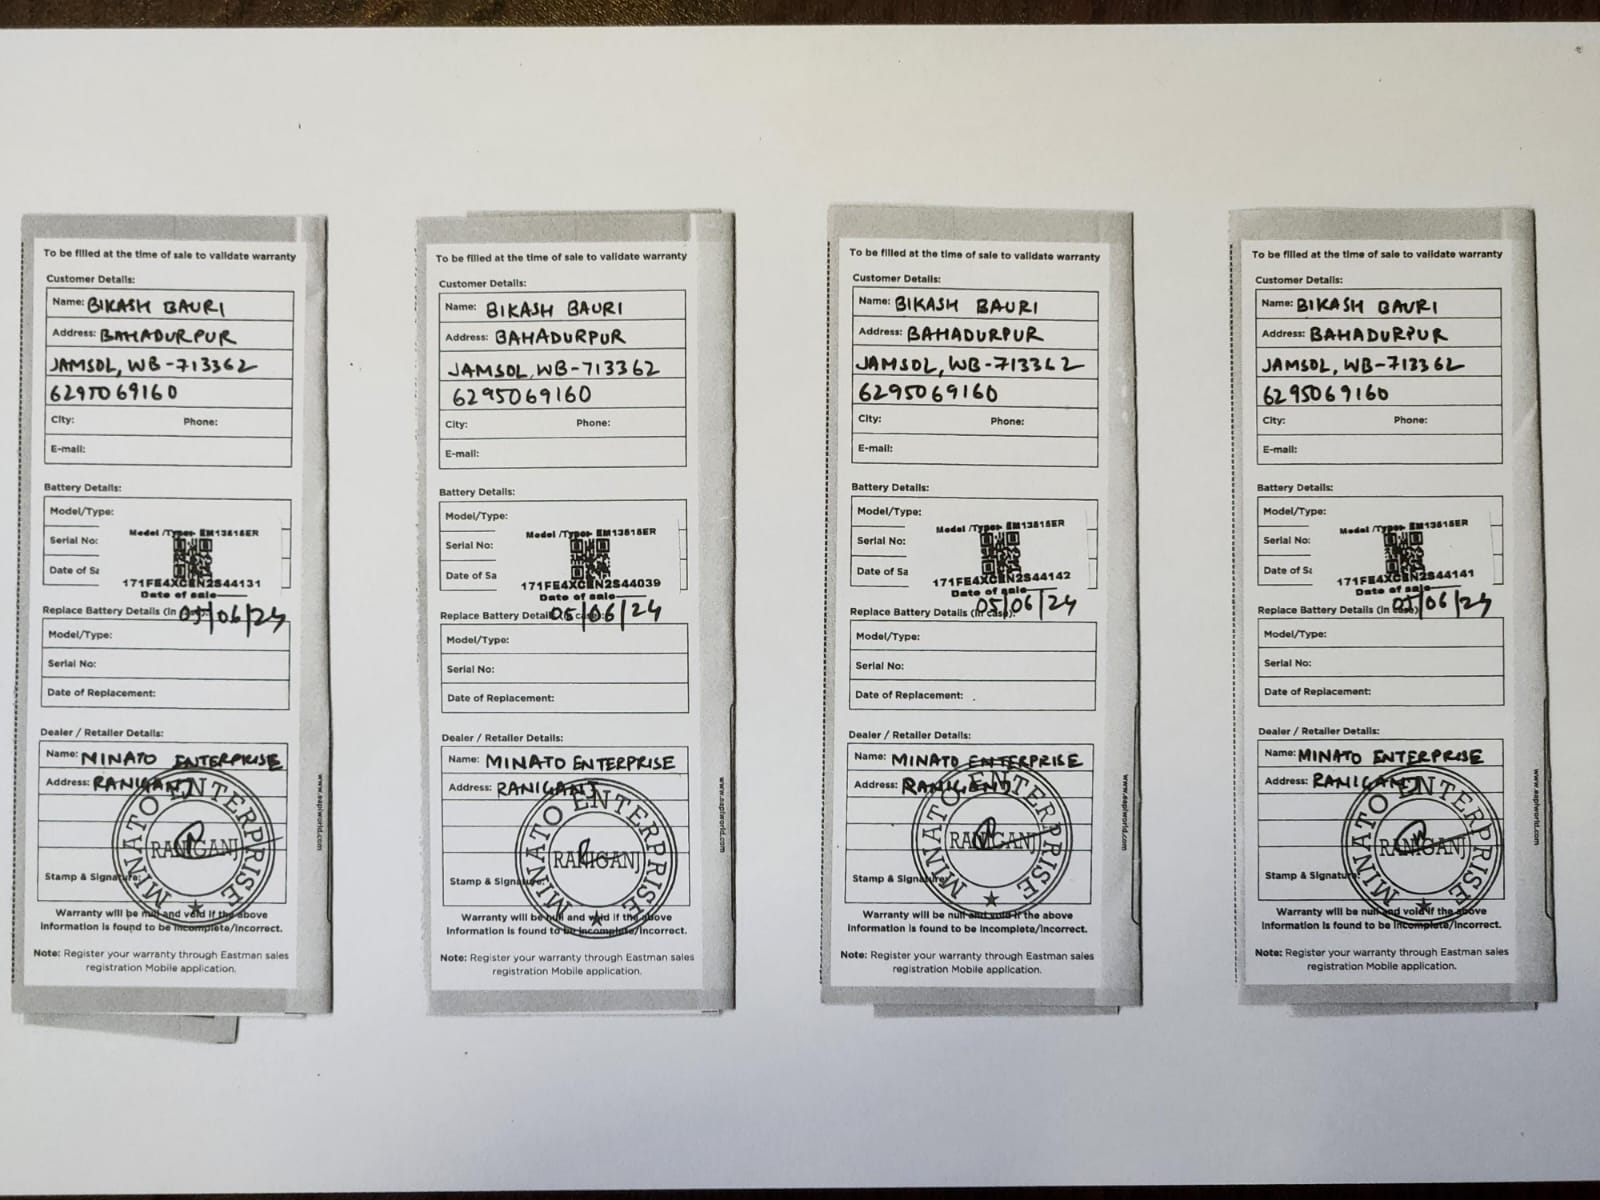 To be filled at the time of sale to validate warranty
Customer Details:
Name: BIKASH BAURI
Address: BAHADURPUR
JAMSOL, WB-713362
6295069160
City: Phone:
E-mail:
Battery Details:
Model/Type:
Model /Type:- EM13515ER
Serial No:
Date of Sa
171FE4XCEN2S44131
Date of sale
05/06/24
Replace Battery Details (In case):
Model/Type:
Serial No:
Date of Replacement:
Dealer / Retailer Details:
Name: MINATO ENTERPRISE
Address: RANIGANJ
MINATO ENTERPRISE
RANIGANJ
Stamp & Signature:
Warranty will be null and void if the above
Information is found to be incomplete/incorrect.
Note: Register your warranty through Eastman sales
registration Mobile application.
www.eaplworld.com
To be filled at the time of sale to validate warranty
Customer Details:
Name: BIKASH BAURI
Address: BAHADURPUR
JAMSOL, WB-713362
6295069160
City: Phone:
E-mail:
Battery Details:
Model/Type:
Model /Type:- EM13515ER
Serial No:
Date of Sa
171FE4XCEN2S44039
Date of sale
05/06/24
Replace Battery Details (In case):
Model/Type:
Serial No:
Date of Replacement:
Dealer / Retailer Details:
Name: MINATO ENTERPRISE
Address: RANIGANJ
MINATO ENTERPRISE
RANIGANJ
Stamp & Signature:
Warranty will be null and void if the above
Information is found to be incomplete/incorrect.
Note: Register your warranty through Eastman sales
registration Mobile application.
www.eaplworld.com
To be filled at the time of sale to validate warranty
Customer Details:
Name: BIKASH BAURI
Address: BAHADURPUR
JAMSOL, WB-713362
6295069160
City: Phone:
E-mail:
Battery Details:
Model/Type:
Model /Type:- EM13515ER
Serial No:
Date of Sa
171FE4XCEN2S44142
Date of sale
05/06/24
Replace Battery Details (In case):
Model/Type:
Serial No:
Date of Replacement:
Dealer / Retailer Details:
Name: MINATO ENTERPRISE
Address: RANIGENJ
MINATO ENTERPRISE
RANIGANJ
Stamp & Signature:
Warranty will be null and void if the above
Information is found to be incomplete/incorrect.
Note: Register your warranty through Eastman sales
registration Mobile application.
www.eaplworld.com
To be filled at the time of sale to validate warranty
Customer Details:
Name: BIKASH BAURI
Address: BAHADURPUR
JAMSOL, WB-713362
6295069160
City: Phone:
E-mail:
Battery Details:
Model/Type:
Model /Type:- EM13515ER
Serial No:
Date of Sa
171FE4XCEN2S44141
Date of sale
05/06/24
Replace Battery Details (In case):
Model/Type:
Serial No:
Date of Replacement:
Dealer / Retailer Details:
Name: MINATO ENTERPRISE
Address: RANIGANJ
MINATO ENTERPRISE
RANIGANJ
Stamp & Signature:
Warranty will be null and void if the above
Information is found to be incomplete/incorrect.
Note: Register your warranty through Eastman sales
registration Mobile application.
www.eaplworld.com